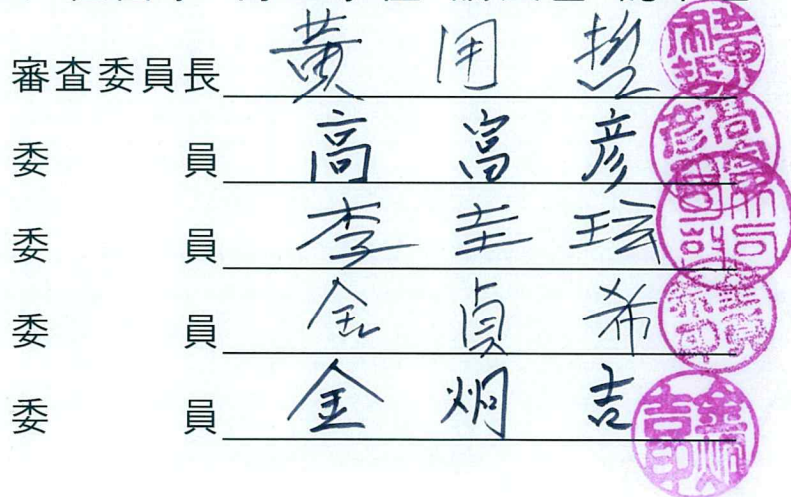 審査委員長 黃用哲
委員 高富彦
委員 李圭珤
委員 金貞希
委員 金炯吉